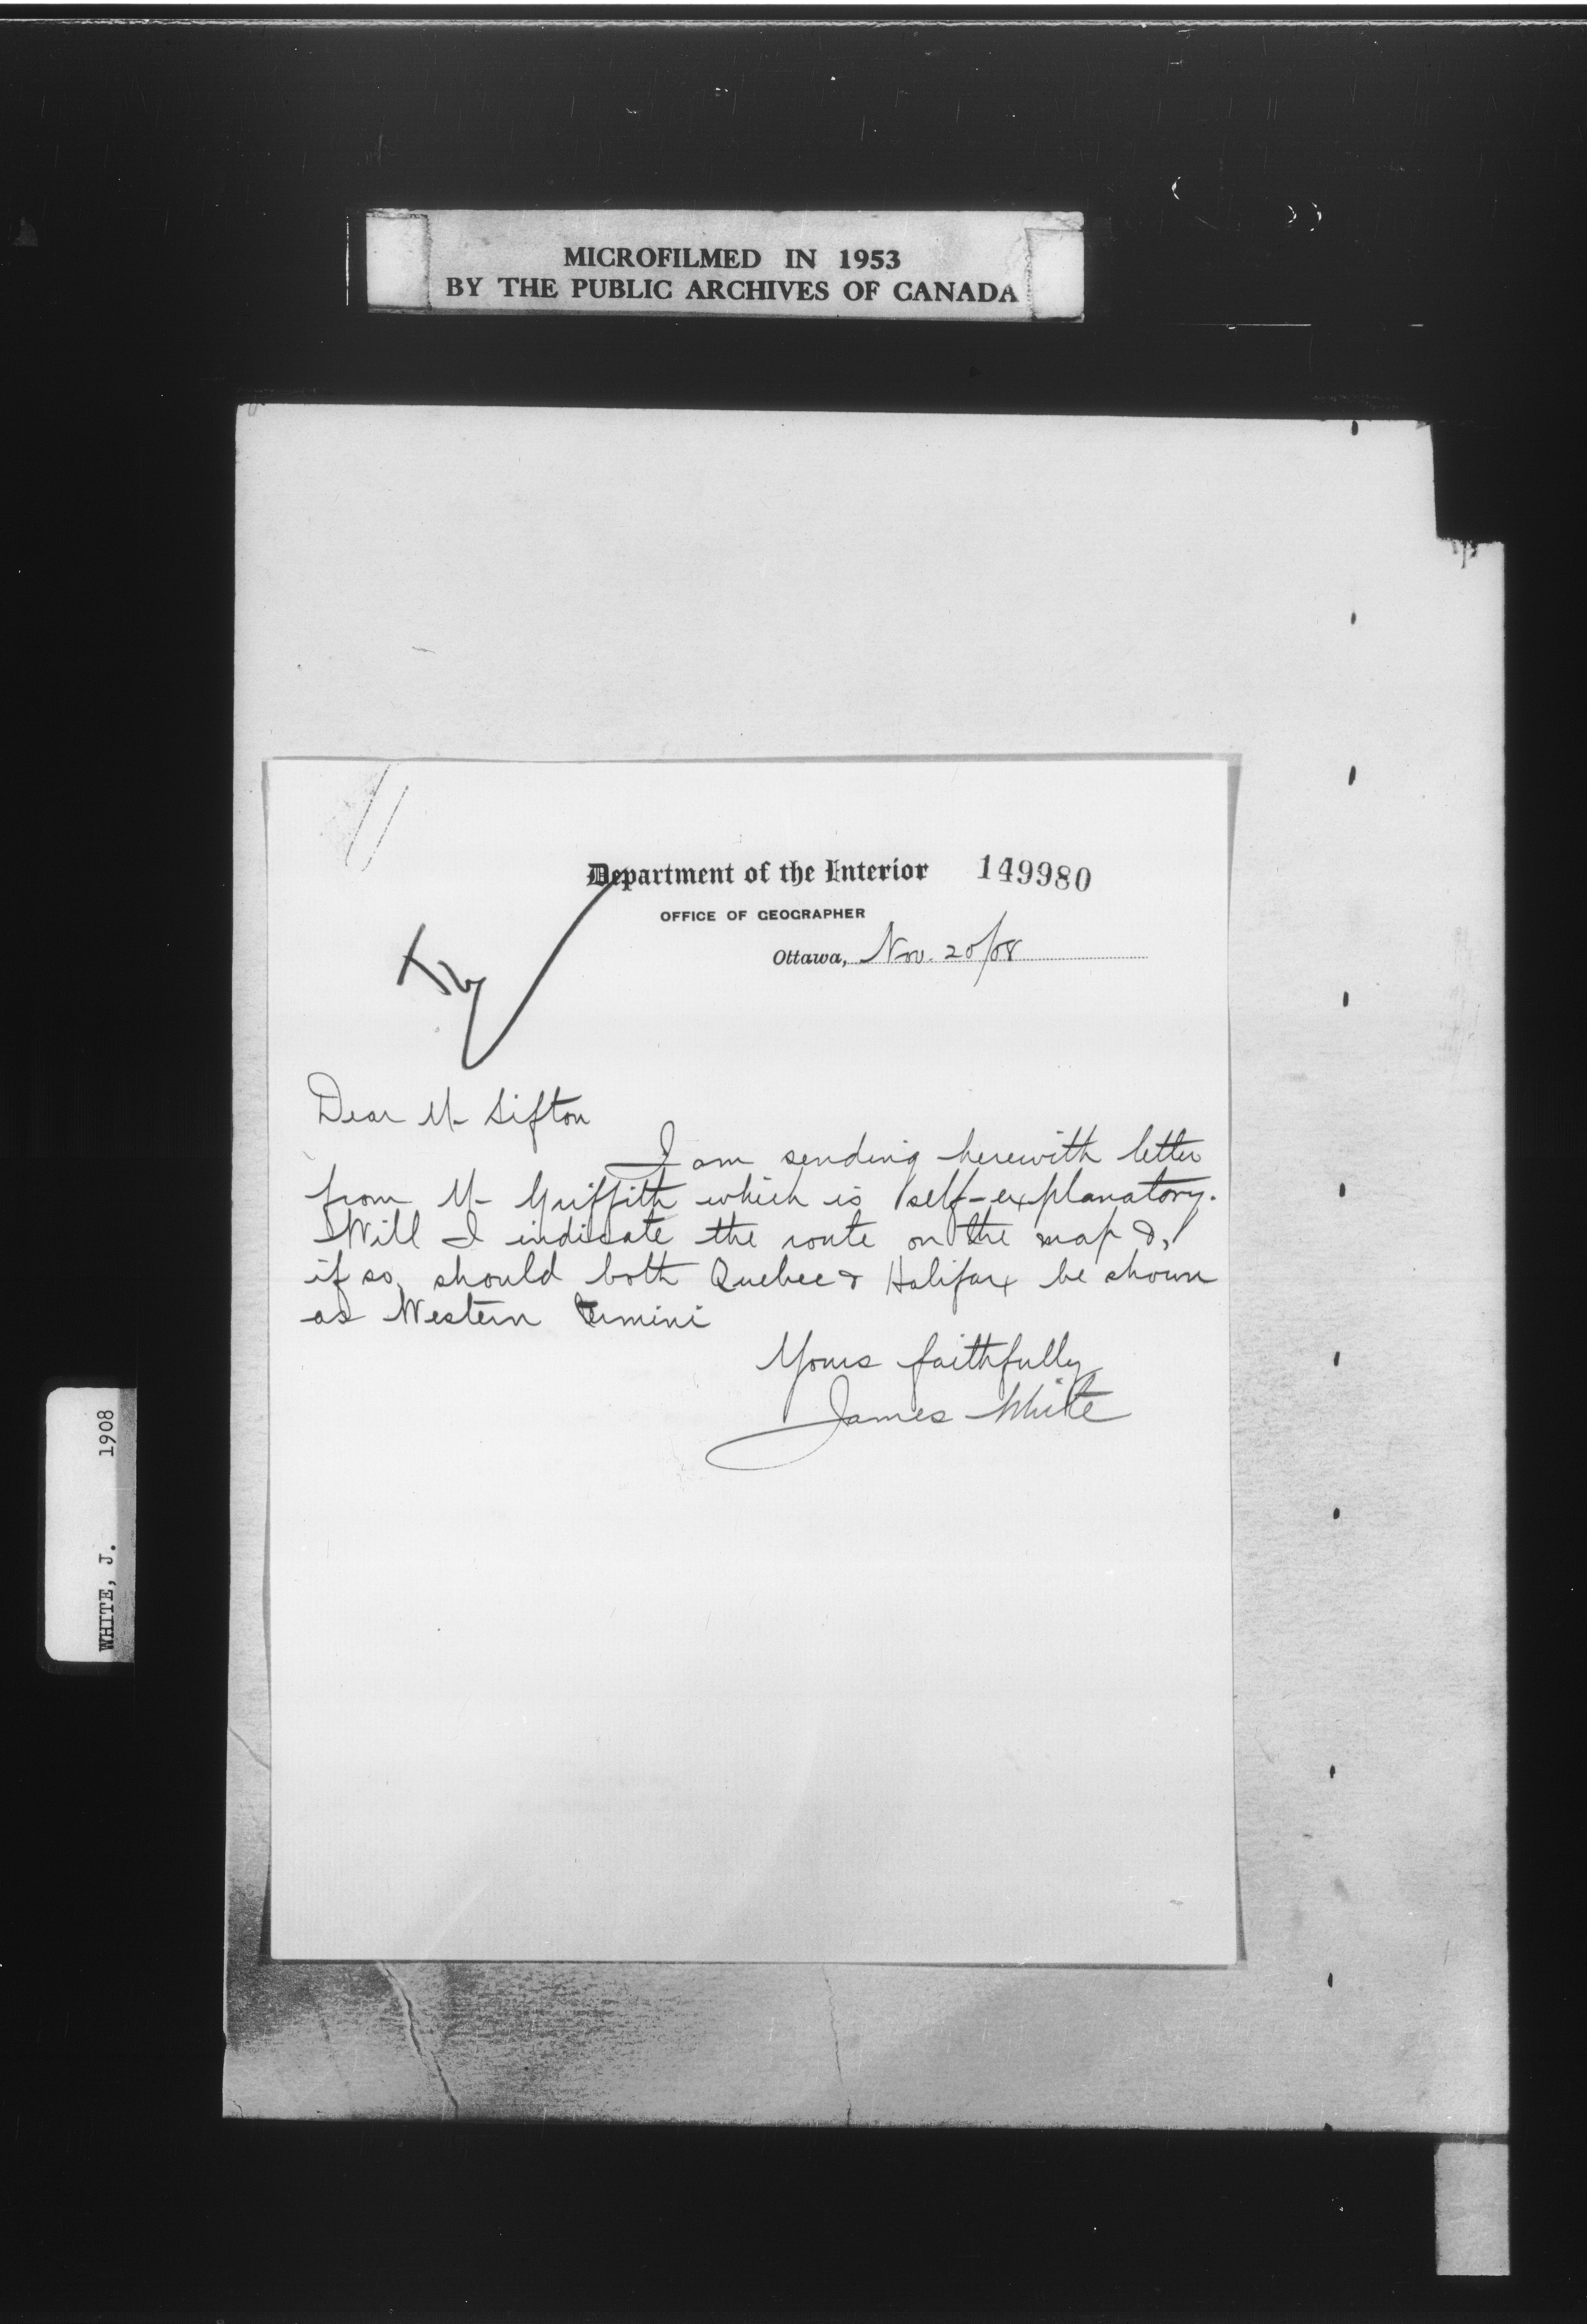 MICROFILMED IN 1953
BY THE PUBLIC ARCHIVES OF CANADA
Department of the Interior 149980
OFFICE OF GEOGRAPHER
Ottawa, Nov. 20/08
Dear Mr Sifton
I am sending herewith letter
from Mr Griffith which is self-explanatory.
Will I indicate the route on the map &,
if so, should both Quebec & Halifax be shown
as Western termini
Yours faithfully
James White
WHITE, J. 1908